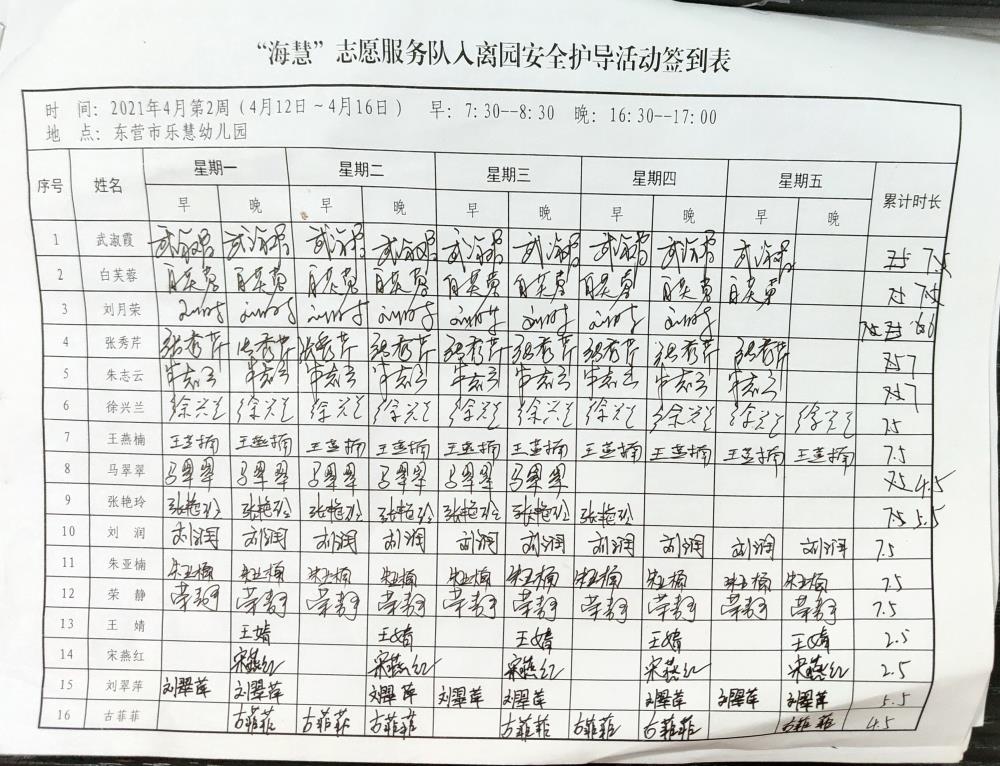 “海慧”志愿服务队入离园安全护导活动签到表
时 间：2021年4月第2周（4月12日～4月16日） 早：7:30--8:30 晚：16:30--17:00
地 点：东营市乐慧幼儿园
序号 姓名 星期一 星期二 星期三 星期四 星期五 累计时长
早 晚 早 晚 早 晚 早 晚 早 晚
1 武淑霞 武淑霞 武淑霞 武淑霞 武淑霞 武淑霞 武淑霞 武淑霞 武淑霞 武淑霞 7.5
2 白芙蓉 白芙蓉 白芙蓉 白芙蓉 白芙蓉 白芙蓉 白芙蓉 白芙蓉 白芙蓉 白芙蓉
3 刘月荣 刘月荣 刘月荣 刘月荣 刘月荣 刘月荣 刘月荣 刘月荣 刘月荣
4 张秀芹 张秀芹 张秀芹 张秀芹 张秀芹 张秀芹 张秀芹 张秀芹 张秀芹 张秀芹 7
5 朱志云 朱志云 朱志云 朱志云 朱志云 朱志云 朱志云 朱志云 朱志云 朱志云 7
6 徐兴兰 徐兴兰 徐兴兰 徐兴兰 徐兴兰 徐兴兰 徐兴兰 徐兴兰 徐兴兰 徐兴兰 徐兴兰 7.5
7 王燕楠 王燕楠 王燕楠 王燕楠 王燕楠 王燕楠 王燕楠 王燕楠 王燕楠 王燕楠 王燕楠 7.5
8 马翠翠 马翠翠 马翠翠 马翠翠 马翠翠 马翠翠 马翠翠 4.5
9 张艳玲 张艳玲 张艳玲 张艳玲 张艳玲 张艳玲 张艳玲 张艳玲 5.5
10 刘 润 刘润 刘润 刘润 刘润 刘润 刘润 刘润 刘润 刘润 刘润 7.5
11 朱亚楠 朱亚楠 朱亚楠 朱亚楠 朱亚楠 朱亚楠 朱亚楠 朱亚楠 朱亚楠 朱亚楠 朱亚楠 7.5
12 荣 静 荣静 荣静 荣静 荣静 荣静 荣静 荣静 荣静 荣静 荣静 7.5
13 王 婧 王婧 王婧 王婧 王婧 王婧 2.5
14 宋燕红 宋燕红 宋燕红 宋燕红 宋燕红 宋燕红 2.5
15 刘翠萍 刘翠萍 刘翠萍 刘翠萍 刘翠萍 刘翠萍 刘翠萍 刘翠萍 刘翠萍 5.5
16 古菲菲 古菲菲 古菲菲 古菲菲 古菲菲 古菲菲 古菲菲 古菲菲 4.5